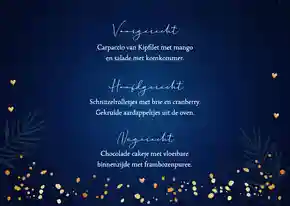 Voorgerecht
Carpaccio van Kipfilet met mango
en salade met komkommer.
Hoofdgerecht
Schnitzelrolletjes met brie en cranberry.
Gekruide aardappeltjes uit de oven.
Nagerecht
Chocolade cakeje met vloeibare
binnenzijde met frambozenpuree.